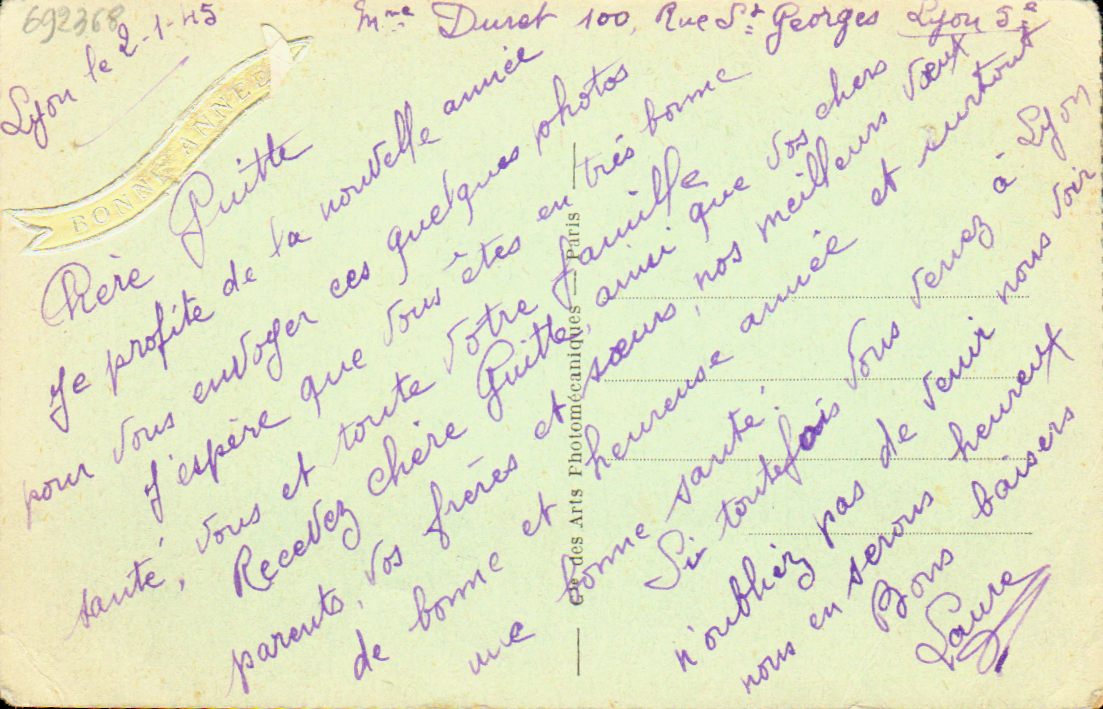 692368
Lyon le 2-1-45
Mme Duret 100, Rue St Georges Lyon 5e
BONNE ANNEE
Chère Guitte
Je profite de la nouvelle année
pour vous envoyer ces quelques photos
J'espère que vous êtes en très bonne
santé, vous et toute votre famille
Recevez chère Guitte, ainsi que vos chers
parents, vos frères et sœurs, nos meilleurs vœux
de bonne et heureuse année et surtout
une bonne santé.
Si toutefois vous venez à Lyon
n'oubliez pas de venir nous voir
nous en serons heureux
Bons baisers
Laure
Cie des Arts Photomécaniques — Paris